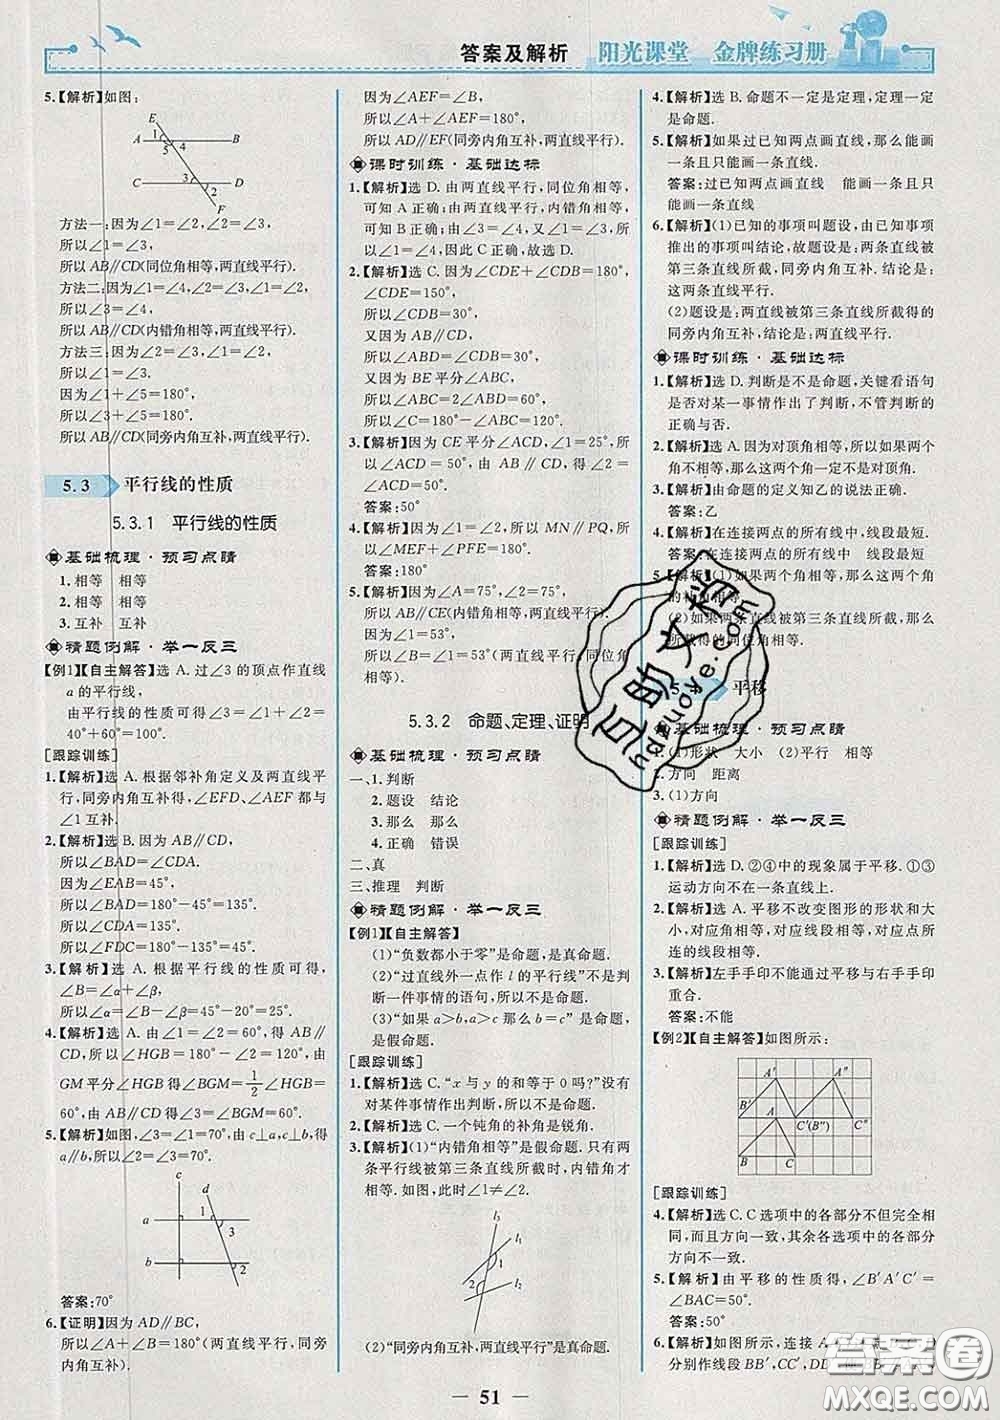 答案及解析 阳光课堂 金牌练习册
5.【解析】如图:
E
A 1 5 4 B
C 3 2 D
F
方法一:因为∠1=∠2,∠2=∠3,
所以∠1=∠3,
所以AB∥CD(同位角相等,两直线平行).
方法二:因为∠1=∠4,∠2=∠3,∠1=∠2,
所以∠3=∠4,
所以AB∥CD(内错角相等,两直线平行).
方法三:因为∠2=∠3,∠1=∠2,
所以∠1=∠3.
因为∠1+∠5=180°,
所以∠3+∠5=180°,
所以AB∥CD(同旁内角互补,两直线平行).
5.3 平行线的性质
5.3.1 平行线的性质
基础梳理·预习点睛
1.相等 相等
2.相等 相等
3.互补 互补
精题例解·举一反三
【例1】【自主解答】选A.过∠3的顶点作直线
a的平行线,
由平行线的性质可得∠3=∠1+∠2=60°+
40°=100°.
[跟踪训练]
1.【解析】选A.根据邻补角定义及两直线平
行,同旁内角互补得,∠EFD、∠AEF都与
∠1互补.
2.【解析】选B.因为AB∥CD,
所以∠BAD=∠CDA.
因为∠EAB=45°,
所以∠BAD=180°-45°=135°.
所以∠CDA=135°.
所以∠FDC=180°-135°=45°.
3.【解析】选A.根据平行线的性质可得,
∠B=∠α+∠β,
所以∠α=∠B-∠β=45°-20°=25°.
4.【解析】选A.由∠1=∠2=60°,得AB∥
CD,所以∠HGB=180°-∠2=120°,由
GM平分∠HGB可得∠BGM=1/2∠HGB=
60°,所以∠3=∠BGM=60°.
5.【解析】如图,∠3=∠1=70°,由c⊥a,c⊥b,得
a∥b,所以∠2=∠3=70°.
c d
a 1 3
b 2
答案:70°
6.【证明】因为AD∥BC,
所以∠A+∠B=180°(两直线平行,同旁
内角互补).
因为∠AEF=∠B,
所以∠A+∠AEF=180°,
所以AD∥EF(同旁内角互补,两直线平行).
课时训练·基础达标
1.【解析】选D.由两直线平行,同位角相等,
可知A正确;由两直线平行,内错角相等,可
知B正确;由∠3=∠4,又∠1=∠3,所以
∠1=∠4,因此C正确,故选D.
2.【解析】选C.因为∠CDE+∠CDB=180°,
∠CDE=150°,
所以∠CDB=30°,
又因为AB∥CD,
所以∠ABD=∠CDB=30°,
又因为BE平分∠ABC,
所以∠ABC=2∠ABD=60°,
所以∠C=180°-∠ABC=120°.
3.【解析】因为CE平分∠ACD,∠1=25°,所
以∠ACD=50°.因为AB∥CD,所以∠2=
∠ACD=50°.
答案:50°
4.【解析】因为∠1=∠2,所以MN∥PQ,所
以∠MEF+∠PFE=180°.
答案:180°
5.【解析】因为∠A=75°,∠2=75°,
所以AB∥CE(内错角相等,两直线平行).
因为∠1=53°,
所以∠B=∠1=53°(两直线平行,同位角
相等).
5.3.2 命题、定理、证明
基础梳理·预习点睛
一、1.判断
2.题设 结论
3.那么 那么
4.正确 错误
二、真
三、推理 判断
精题例解·举一反三
【例1】【自主解答】
(1)“负数都小于零”是命题,是真命题.
(2)“过直线外一点作l的平行线”不是判
断一件事情的语句,所以不是命题.
(3)“如果a>b,a>c那么b=c”是命题,
是假命题.
[跟踪训练]
1.【解析】选C.“x与y的和等于0吗?”没有
对某件事情作出判断,所以不是命题.
2.【解析】选C.一个钝角的补角是锐角.
3.【解析】(1)“内错角相等”是假命题.只有两
条平行线被第三条直线所截时,内错角才
相等.如图,此时∠1≠∠2.
l3
l1
1
2 l2
(2)“同旁内角互补,两直线平行”是真命题.
4.【解析】选B.命题不一定是定理,定理一定
是命题.
5.【解析】如果过已知两点画直线,那么能画
一条且只能画一条直线.
答案:过已知两点画直线 能画一条且只
能画一条直线
6.【解析】(1)已知的事项叫题设,由已知事项
推出的事项叫结论,故题设是:两条直线被
第三条直线所截,同旁内角互补.结论是:
这两条直线平行.
(2)题设是:两直线被第三条直线所截得的
同旁内角互补,结论是:两直线平行.
课时训练·基础达标
1.【解析】选D.判断是不是命题,关键看语句
是否对某一事情作出了判断,不管判断的
正确与否.
2.【解析】选A.因为对顶角相等,所以如果两
个角不相等,那么这两个角不是对顶角.
3.【解析】由命题的定义知乙的说法正确.
答案:乙
4.【解析】在连接两点的所有线中,线段最短.
答案:在连接两点的所有线中 线段最短
5.【解析】(1)如果两个角相等,那么这两个角
的补角相等.
(2)如果两条平行线被第三条直线所截,那
么所截得的同位角相等.
平移
基础梳理·预习点睛
1.(1)形状 大小 (2)平行 相等
2.方向 距离
3.(1)方向
精题例解·举一反三
[跟踪训练]
1.【解析】选D.②④中的现象属于平移.①③
运动方向不在一条直线上.
2.【解析】选A.平移不改变图形的形状和大
小,对应角相等,对应线段相等,对应点所
连的线段相等.
3.【解析】左手手印不能通过平移与右手手印
重合.
答案:不能
【例2】【自主解答】如图所示:
A′ A″
B′ A C′(B″) C″
B C
[跟踪训练]
4.【解析】选C.C选项中的各部分不但完全相
同,而且方向一致,其余各选项中的各部分
方向不一致.
5.【解析】由平移的性质得,∠B′A′C′=
∠BAC=50°.
答案:50°
6.【解析】如图所示,连接
分别作线段BB′,CC′,
51
互助文档
huzhukonwpyoke.com
答案圈
MXQE.COM